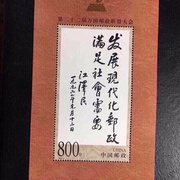 第二十二届万国邮政联盟大会
发展现代化郵政
满足社會需要
江泽民
800分
CHINA
中国邮政